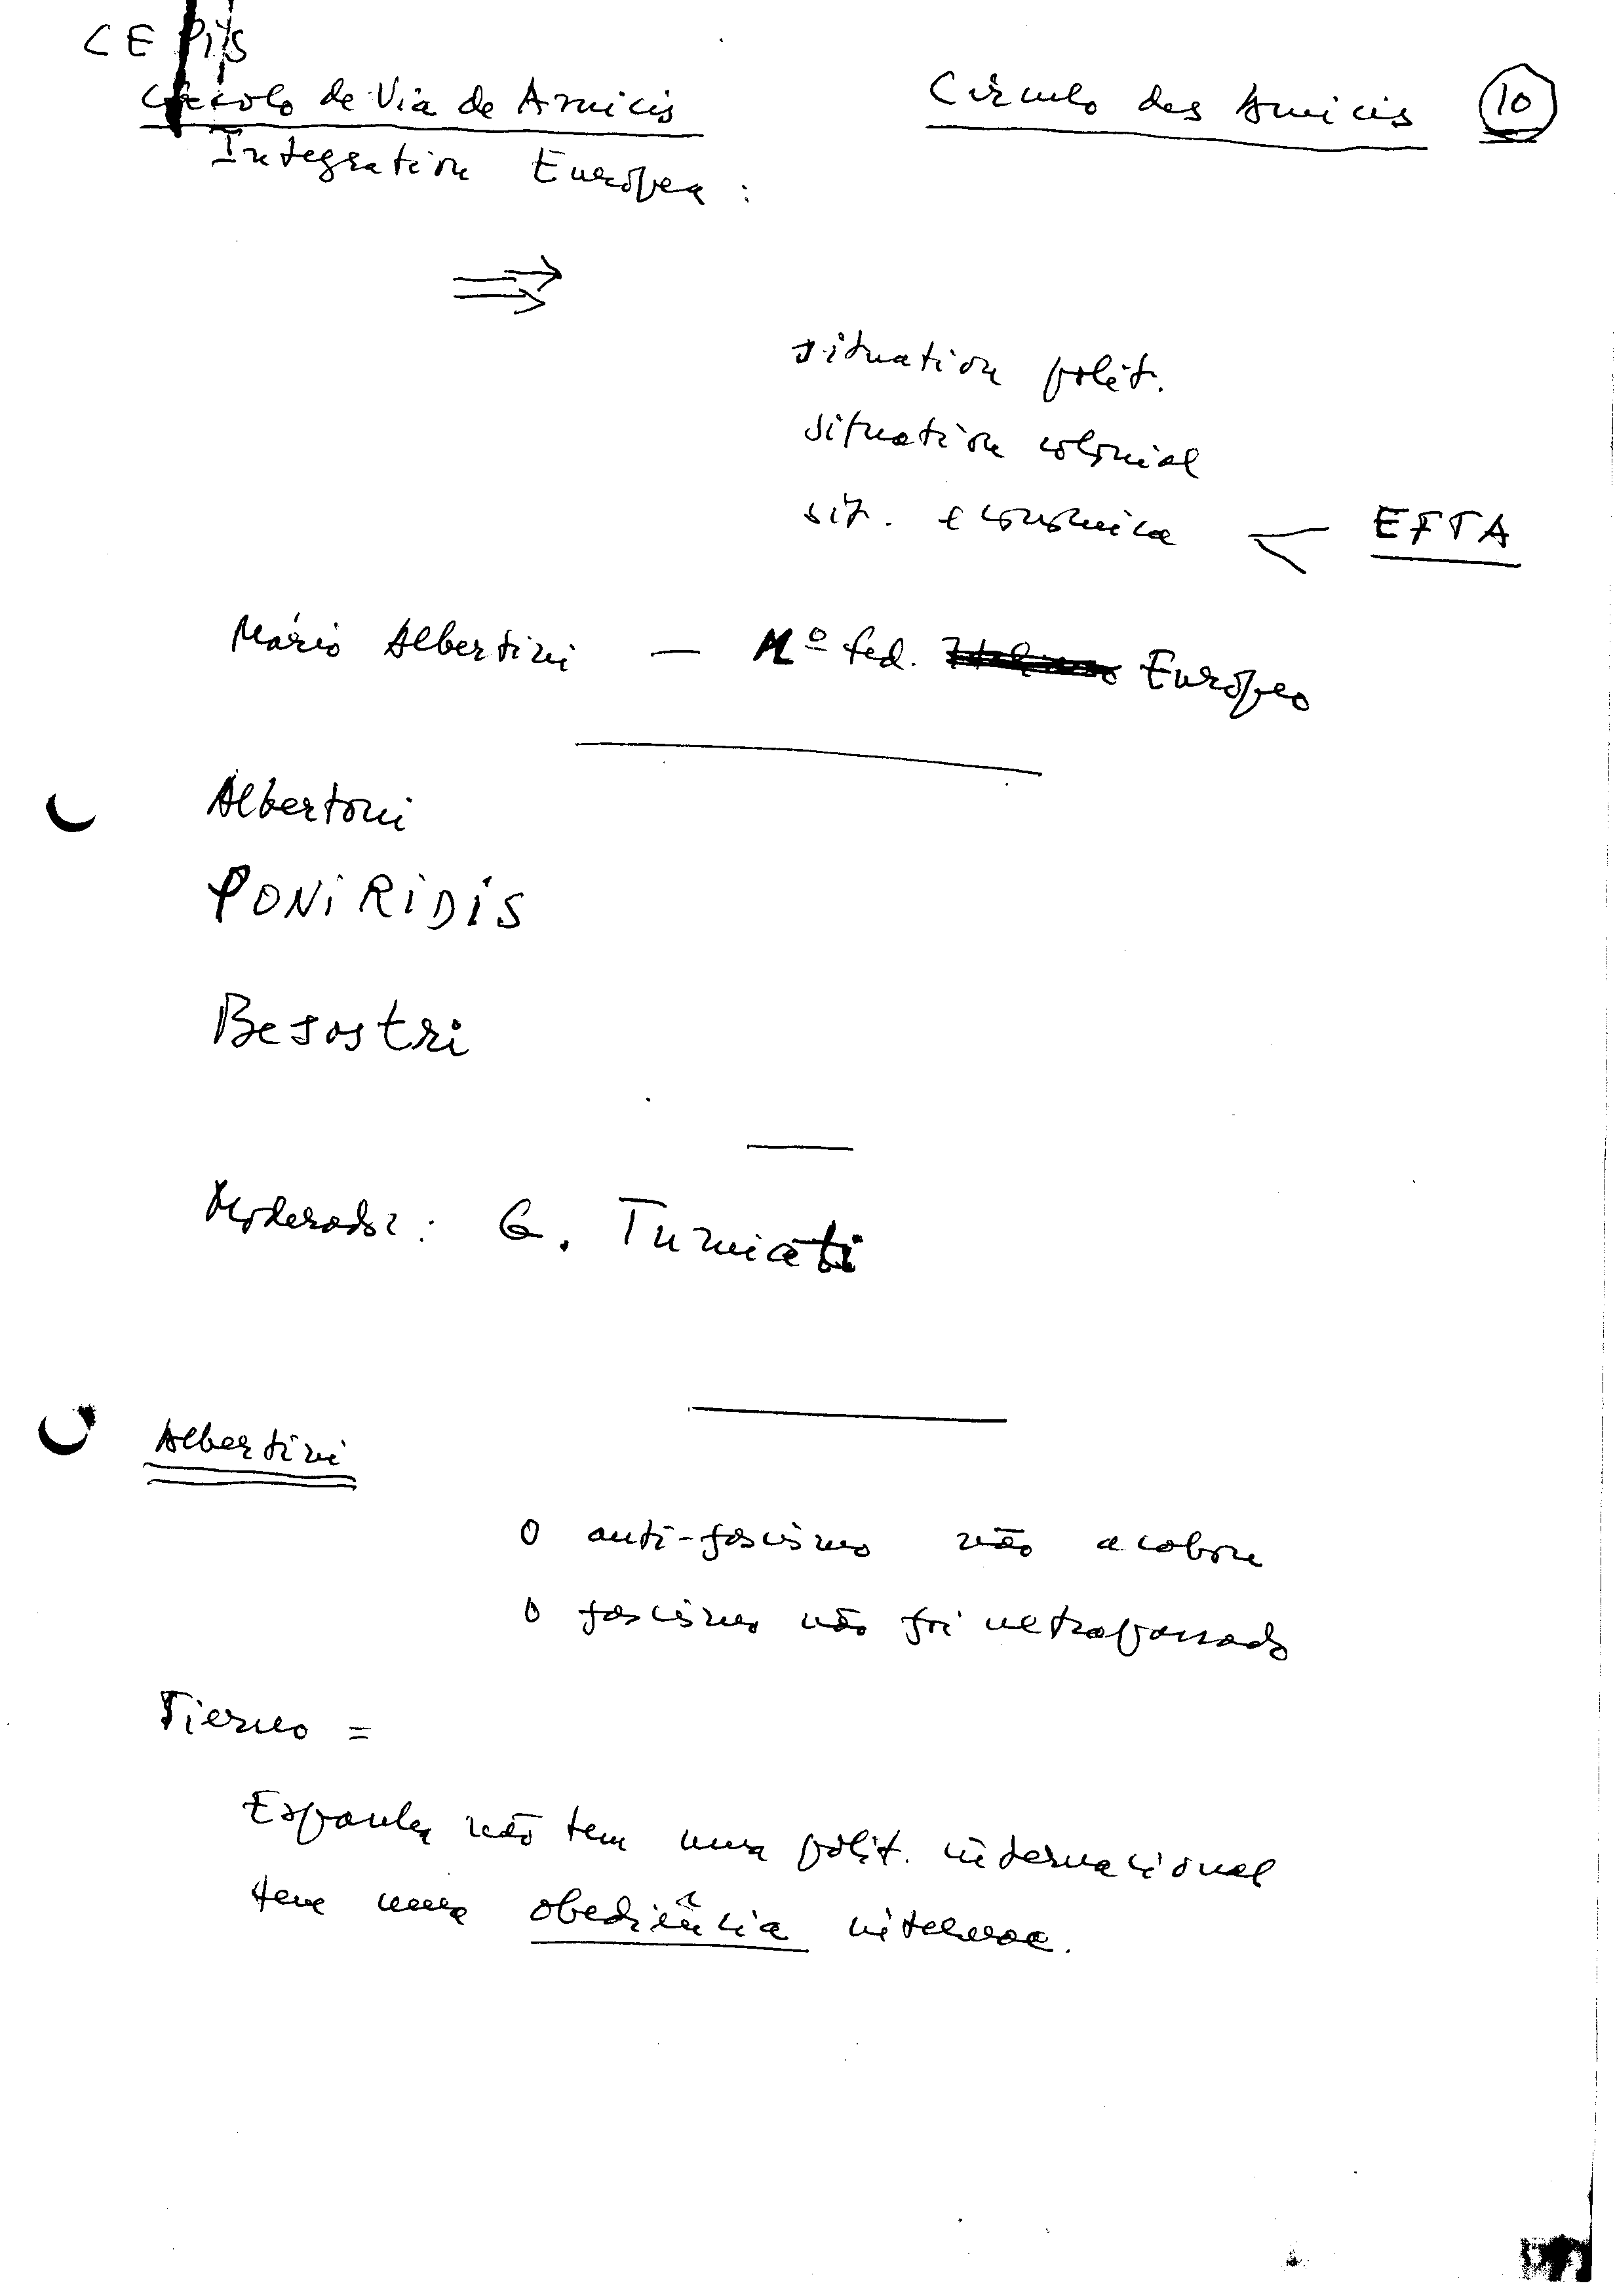 CE
Circolo de Via de Amicis
Circulo des Amicis 10
Integration Europea :
situation polit.
situation colonial
sit. economica < EFTA
Mário Albertini — Mº fed. Italiano Europeo
Albertoni
PONiRiDiS
Besostri
Moderador : G. Turniati
Albertini
O anti-fascismo não acabou
O fascismo não foi ultrapassado
Tierno =
Espanha não tem uma polit. internacional
tem uma obediência interna.